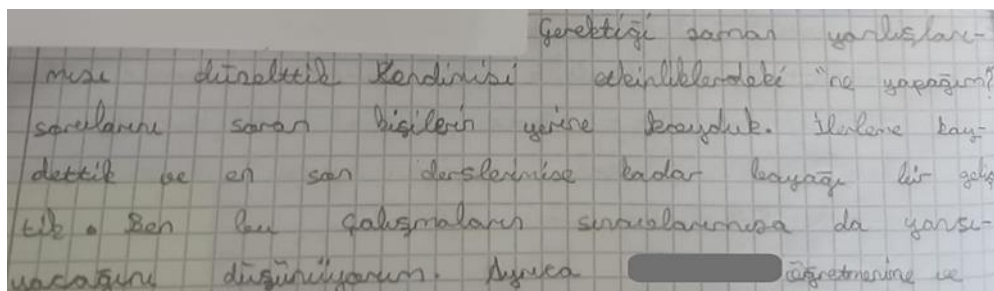 Gerektiği zaman yanlışları-
mızı düzelttik. Kendimizi etkinliklerdeki "ne yapayım?"
sorularını soran kişilerin yerine koyduk. İlerleme kay-
dettik ve en son derslerimize kadar bayağı bir geliş
tik. Ben bu çalışmaların sınavlarımıza da yansı-
yacağını düşünüyorum. Ayrıca öğretmenine ve